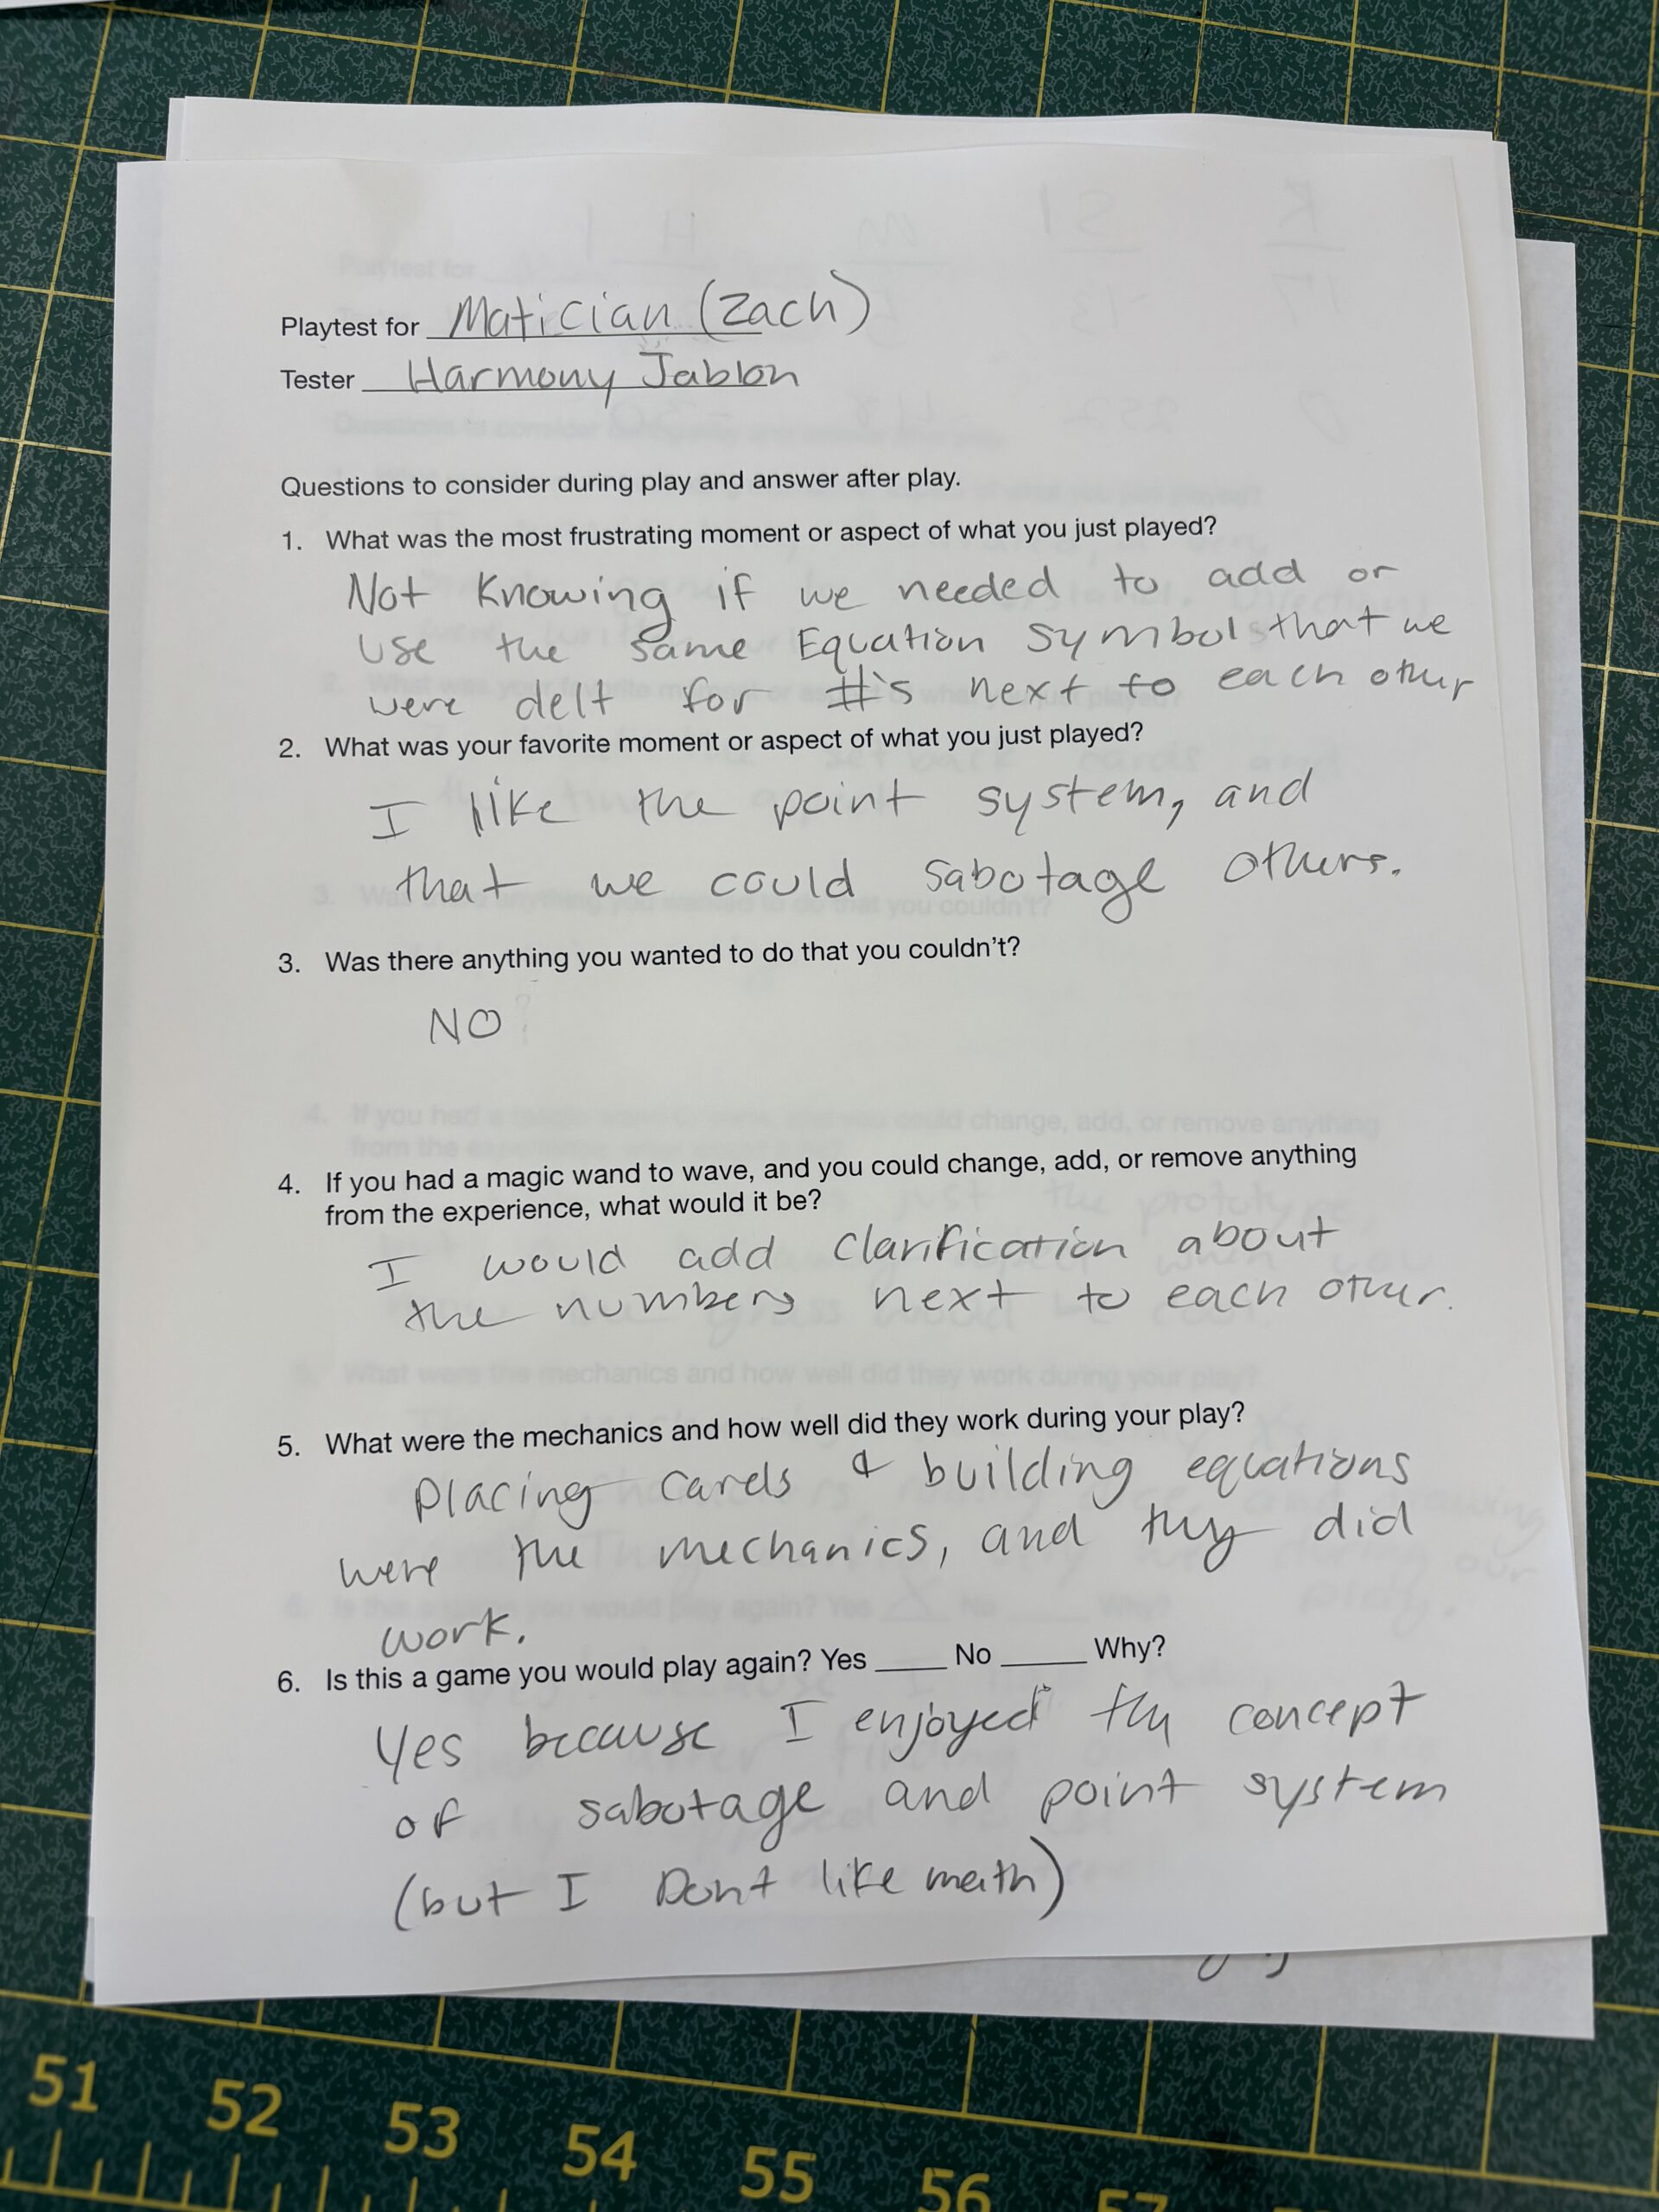 Playtest for Matician (Zach)
Tester Harmony Jablon
Questions to consider during play and answer after play.
1. What was the most frustrating moment or aspect of what you just played?
Not Knowing if we needed to add or
use the same Equation symbols that we
were delt for #'s next to each other
2. What was your favorite moment or aspect of what you just played?
I like the point system, and
that we could sabotage others.
3. Was there anything you wanted to do that you couldn't?
NO
4. If you had a magic wand to wave, and you could change, add, or remove anything
from the experience, what would it be?
I would add clarification about
the numbers next to each other.
5. What were the mechanics and how well did they work during your play?
Placing cards & building equations
were the mechanics, and thy did
work.
6. Is this a game you would play again? Yes ____ No ____ Why?
Yes because I enjoyed the concept
of sabotage and point system
(but I Dont like math)
51 52 53 54 55 56 57